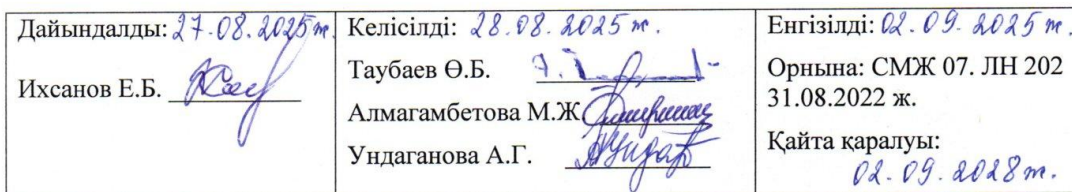 Дайындалды: 27.08.2025ж.
Ихсанов Е.Б.
Келісілді: 28.08.2025 ж.
Таубаев Ө.Б.
Алмагамбетова М.Ж
Ундаганова А.Г.
Енгізілді: 02.09.2025 ж.
Орнына: СМЖ 07. ЛН 202
31.08.2022 ж.
Қайта қаралуы:
02.09.2028 ж.